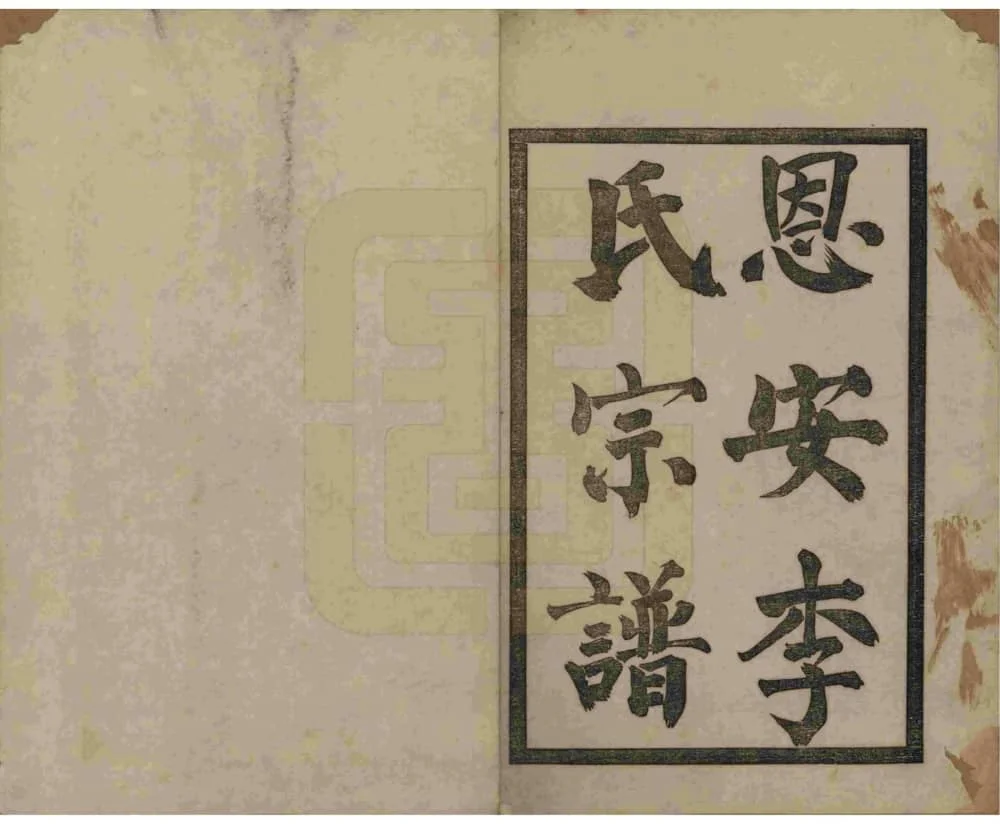 恩安李
氏宗譜